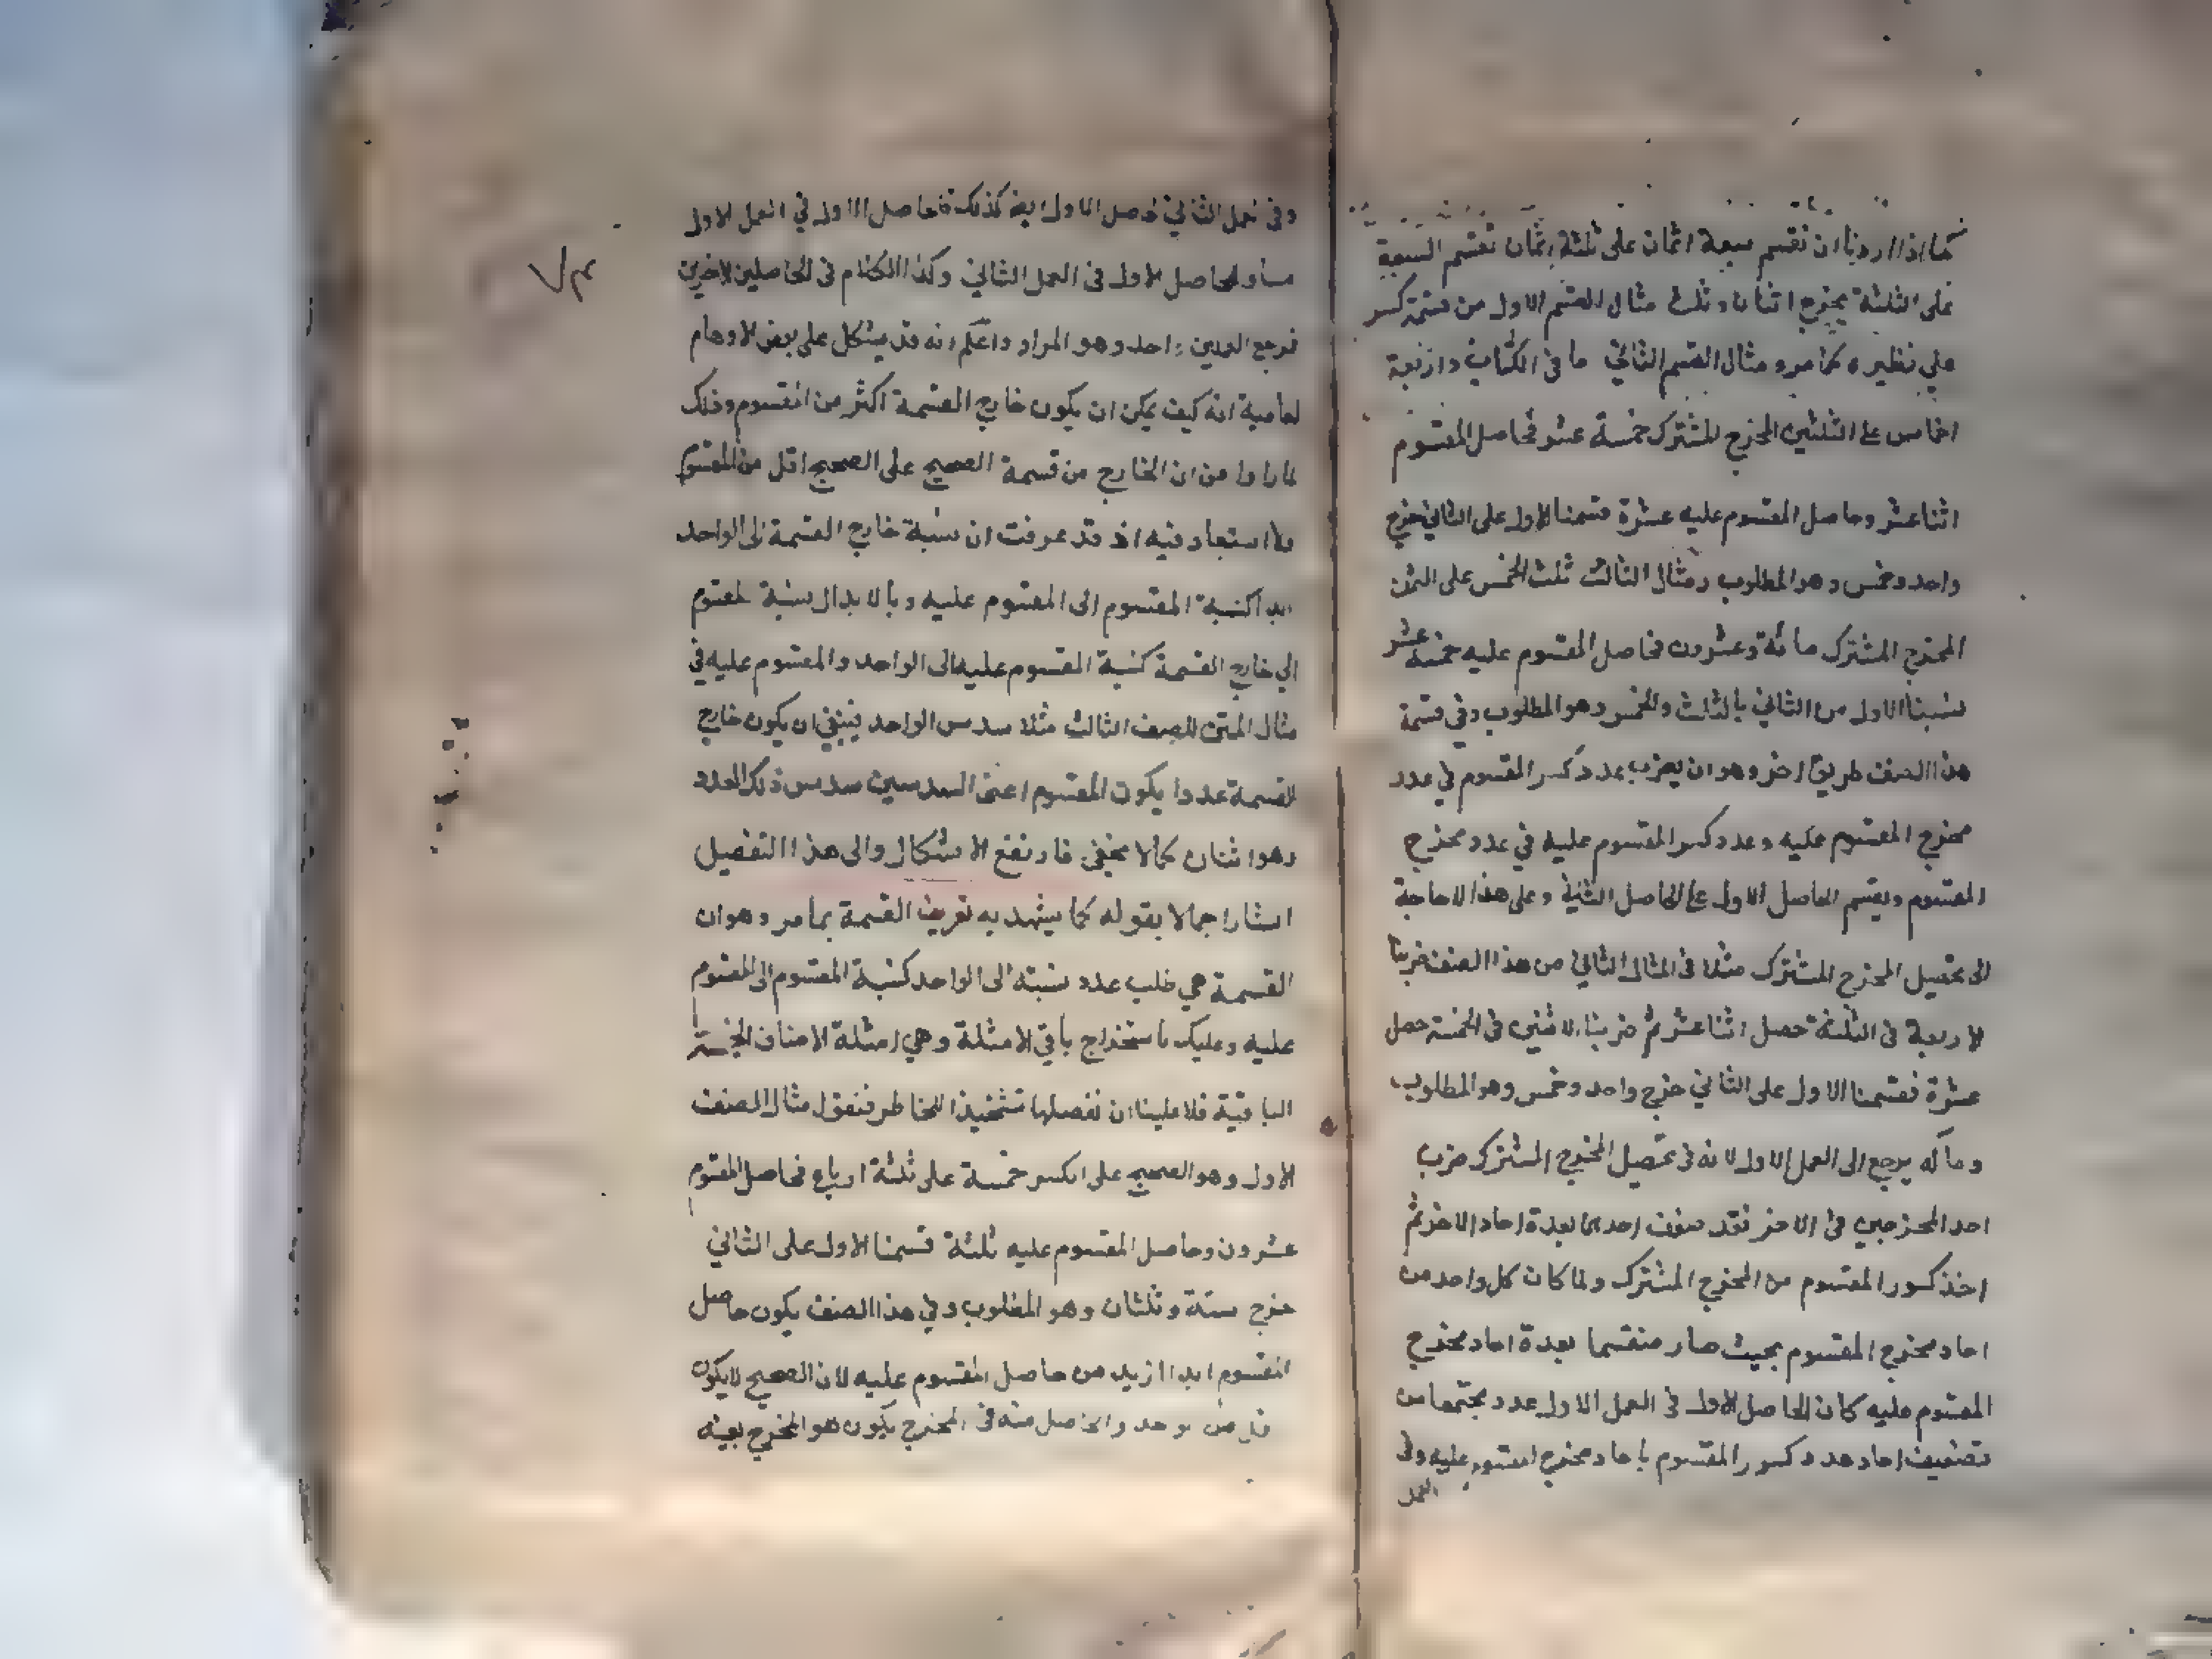 كما اذا اردنا ان نقسم سبعة اثمان على ثلثة اثمان نقسم السبعة
على الثلثة يخرج اثنان وثلث مثال القسم الاول من قسمة كسر
على نظيره كما مر ومثال القسم الثاني ما في الكتاب واربعة
اخماس على الثلثين المخرج المشترك خمسة عشر فحاصل المقسوم
اثنا عشر وحاصل المقسوم عليه عشرة قسمنا الاول على الثاني خرج
واحد وخمس وهو المطلوب ومثال الثالث ثلث الخمس على الثمن
المخرج المشترك مائة وعشرون فحاصل المقسوم عليه خمسة عشر
نسبنا الاول من الثاني بالثلث والخمس وهو المطلوب وفي قسمة
هذا الصنف طريق اخر وهو ان يضرب عدد كسر المقسوم في عدد
مخرج المقسوم عليه وعدد كسر المقسوم عليه في عدد مخرج
المقسوم ويقسم الحاصل الاول على الحاصل الثاني وعلى هذا لا حاجة
الى تحصيل المخرج المشترك مثلا في المثال الثاني من هذا الصنف ضربنا
الاربعة في الثلثة حصل اثنا عشر ثم ضربنا الاثنين في الخمسة حصل
عشرة فقسمنا الاول على الثاني خرج واحد وخمس وهو المطلوب
ومآله يرجع الى العمل الاول لانه في تحصيل المخرج المشترك ضرب
احد المخرجين في الاخر فقد ضوعف احدهما بعدة احاد الاخر ثم
اخذ كسور المقسوم من المخرج المشترك ولما كان كل واحد من
احاد مخرج المقسوم بحيث صار منقسما بعدة احاد مخرج
المقسوم عليه كان الحاصل الاول في العمل الاول عدد مجتمعا من
تضعيف احاد عدد كسور المقسوم باحاد مخرج المقسوم عليه وفي
العمل
وفي العمل الثاني الحاصل الاول ايضا كذلك فالحاصل الاول في العمل الاول
مساو للحاصل الاول في العمل الثاني وكذا الكلام في الحاصلين الاخيرين
فرجع العملين واحد وهو المراد واعلم انه قد يشكل على بعض الاوهام
العامية انه كيف يمكن ان يكون خارج القسمة اكثر من المقسوم وذلك
لما راوا من ان الخارج من قسمة الصحيح على الصحيح اقل من المقسوم
ولا استبعاد فيه اذ قد عرفت ان نسبة خارج القسمة الى الواحد
ابدا كنسبة المقسوم الى المقسوم عليه وبالابدال نسبة المقسوم
الى خارج القسمة كنسبة المقسوم عليه الى الواحد والمقسوم عليه في
مثال المتن للصنف الثالث مثلا سدس الواحد فينبغي ان يكون خارج
القسمة عددا يكون المقسوم اعنى السدسين سدس ذلك العدد
وهو اثنان كما لا يخفى فارتفع الاشكال والى هذا التفصيل
اشار اجمالا بقوله كما يشهد به تعريف القسمة بما مر وهو ان
القسمة هي طلب عدد نسبته الى الواحد كنسبة المقسوم الى المقسوم
عليه وعليك باستخراج باقي الامثلة وهي امثلة الاصناف الخمسة
الباقية فلا علينا ان نفصلها تشحيذا للخاطر فنقول مثال الصنف
الاول وهو الصحيح على الكسر خمسة على ثلثة ارباع فحاصل المقسوم
عشرون وحاصل المقسوم عليه ثلثة قسمنا الاول على الثاني
خرج ستة وثلثان وهو المطلوب وفي هذا الصنف يكون حاصل
المقسوم ابدا ازيد من حاصل المقسوم عليه لان الصحيح لا يكون
اقل من واحد والحاصل منه في المخرج يكون هو المخرج بعينه